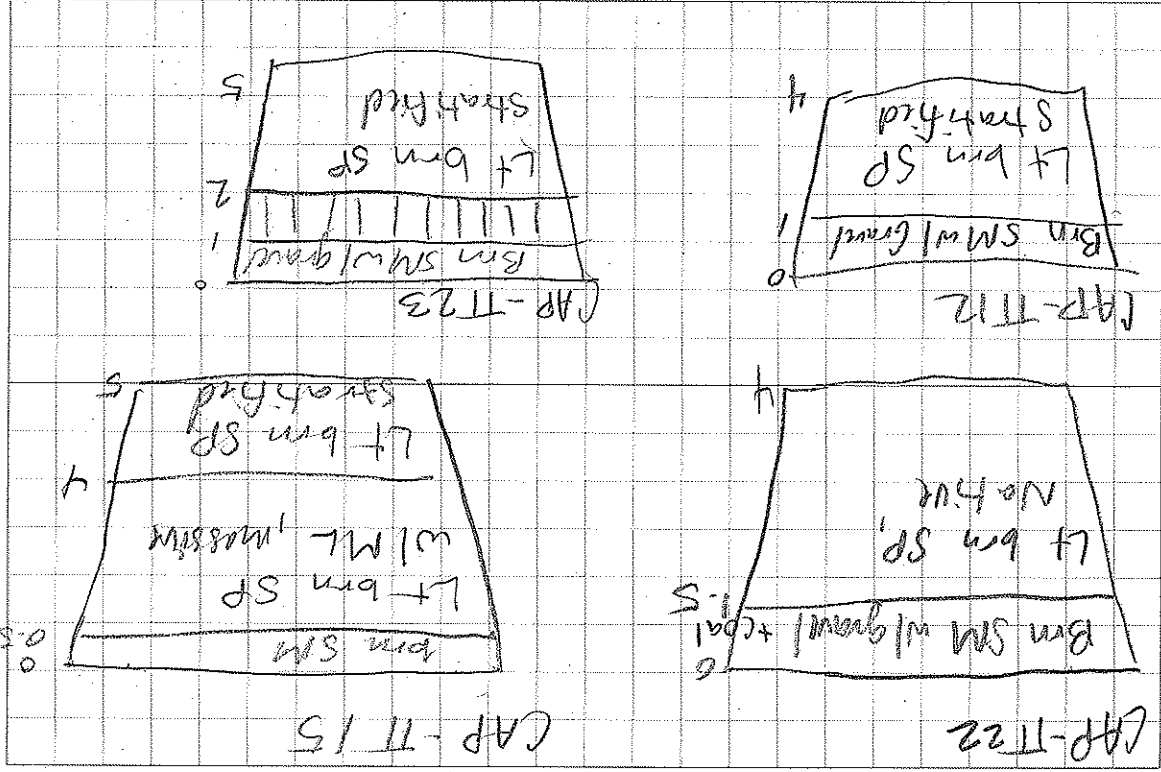 CAP-TT22
0
Brn SM w/ gravel + coal
1.5
Lt brn SP,
Native
4
CAP-TT15
0
brn SM
0.5
Lt brn SP
w/ ML, massive
4
Lt brn SP
stratified
5
CAP-TT12
0
Brn SM w/ Gravel
1
Lt brn SP
Stratified
4
CAP-TT23
0
Brn SM w/ gravel
1
2
Lt brn SP
Stratified
5